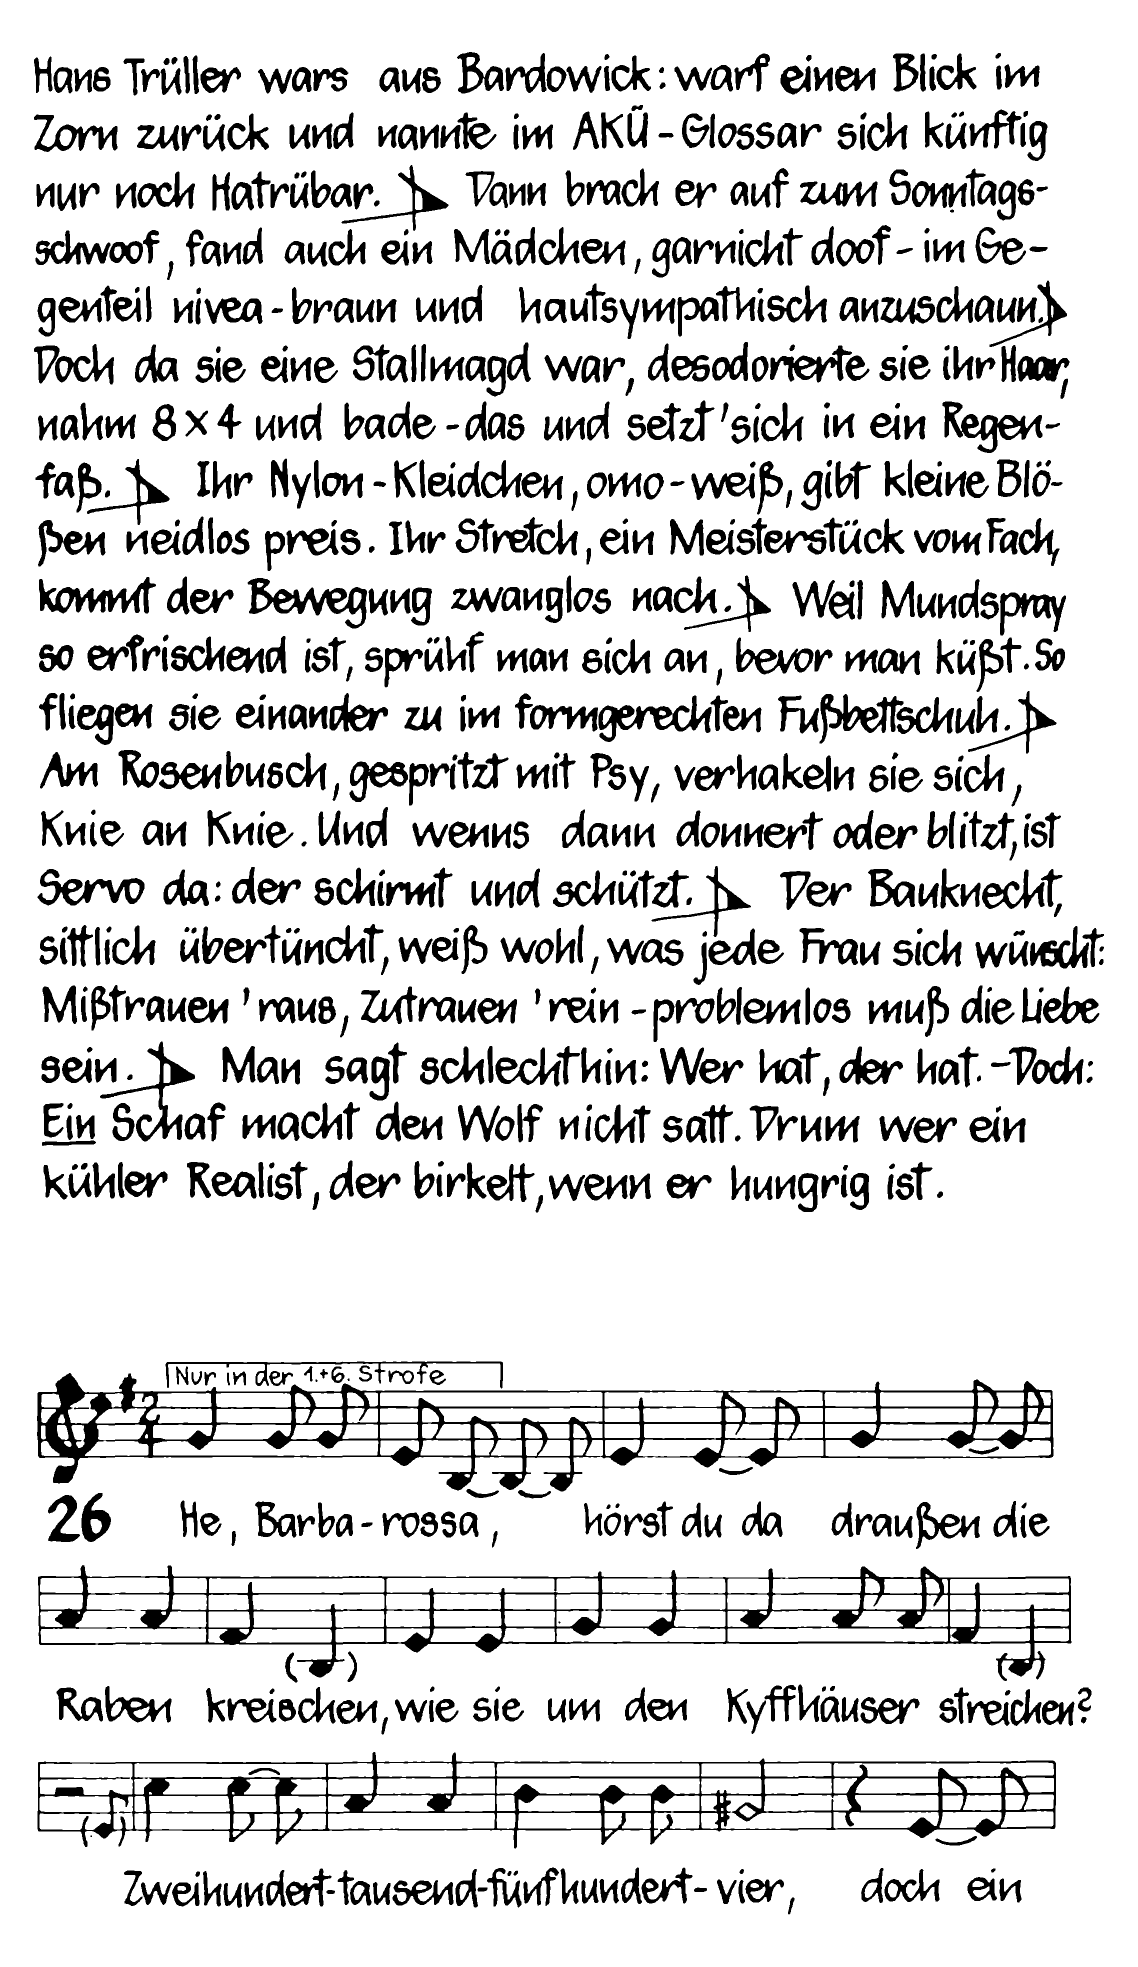 Hans Trüller wars aus Bardowick: warf einen Blick im
Zorn zurück und nannte im AKÜ-Glossar sich künftig
nur noch Hatrübar. Dann brach er auf zum Sonntags-
schwoof, fand auch ein Mädchen, garnicht doof - im Ge-
genteil nivea-braun und hautsympathisch anzuschaun.
Doch da sie eine Stallmagd war, desodorierte sie ihr Haar,
nahm 8x4 und bade-das und setzt' sich in ein Regen-
faß. Ihr Nylon-Kleidchen, omo-weiß, gibt kleine Blö-
ßen neidlos preis. Ihr Stretch, ein Meisterstück vom Fach,
kommt der Bewegung zwanglos nach. Weil Mundspray
so erfrischend ist, sprüht man sich an, bevor man küßt. So
fliegen sie einander zu im formgerechten Fußbettschuh.
Am Rosenbusch, gespritzt mit Psy, verhakeln sie sich,
Knie an Knie. Und wenns dann donnert oder blitzt, ist
Servo da: der schirmt und schützt. Der Bauknecht,
sittlich übertüncht, weiß wohl, was jede Frau sich wünscht:
Mißtrauen 'raus, Zutrauen 'rein - problemlos muß die Liebe
sein. Man sagt schlechthin: Wer hat, der hat. - Doch:
Ein Schaf macht den Wolf nicht satt. Drum wer ein
kühler Realist, der birkelt, wenn er hungrig ist.
Nur in der 1.+6. Strofe
2
4
26 He, Barba-rossa, hörst du da draußen die
Raben kreischen, wie sie um den Kyffhäuser streichen?
Zweihundert-tausend-fünfhundert-vier, doch ein